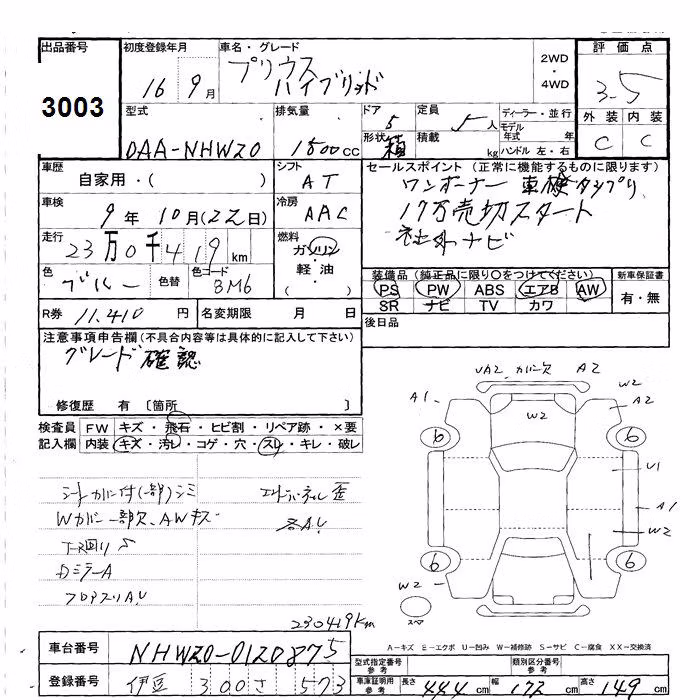 出品番号
3003
初度登録年月
16 9月
車名・グレード
プリウス
ハイブリッド
2WD
・
4WD
評価点
3.5
外装 内装
C C
型式
DAA-NHW20
排気量
1500cc
ドア
5
形状
箱
定員
5人
積載
kg
ディーラー・並行
モデル年式 年
ハンドル 左・右
車歴
自家用・( )
シフト
AT
セールスポイント (正常に機能するものに限ります)
ワンオーナー 車検タップリ
17万売切スタート
社外ナビ
車検
9年10月(22日)
冷房
AAC
走行
23万0千419km
燃料
ガソリン
軽油・
( )
色
色替
色コード
8M6
装備品(純正品に限り〇をつけてください)
PS PW ABS エアB AW
SR ナビ TV カワ
新車保証書
有・無
R券 11,410円
名変期限 月 日
後日品
注意事項申告欄(不具合内容等は具体的に記入して下さい)
グレード確認
修復歴 有〔箇所 〕
検査員記入欄
FW キズ・飛石・ヒビ割・リペア跡・×要
内装 キズ・汚レ・コゲ・穴・スレ・キレ・破レ
シートカバー付(一部)シミ
Wカバー一部欠、AWキズ
DミラーA
各A、U
230419km
UA2 カバー欠 A2
W2
A1
W2
A2
6
6
U1
A1
W2
6
6
W2
スペア
A-キズ E-エクボ U-凹み W-補修跡 S-サビ C-腐食 XX-交換済
車台番号
NHW20-0120875
登録番号
伊豆 300 さ 573
型式指定番号
参考
類別区分番号
参考
車庫証明用
参考
長さ 444cm 幅 173cm 高さ 149cm